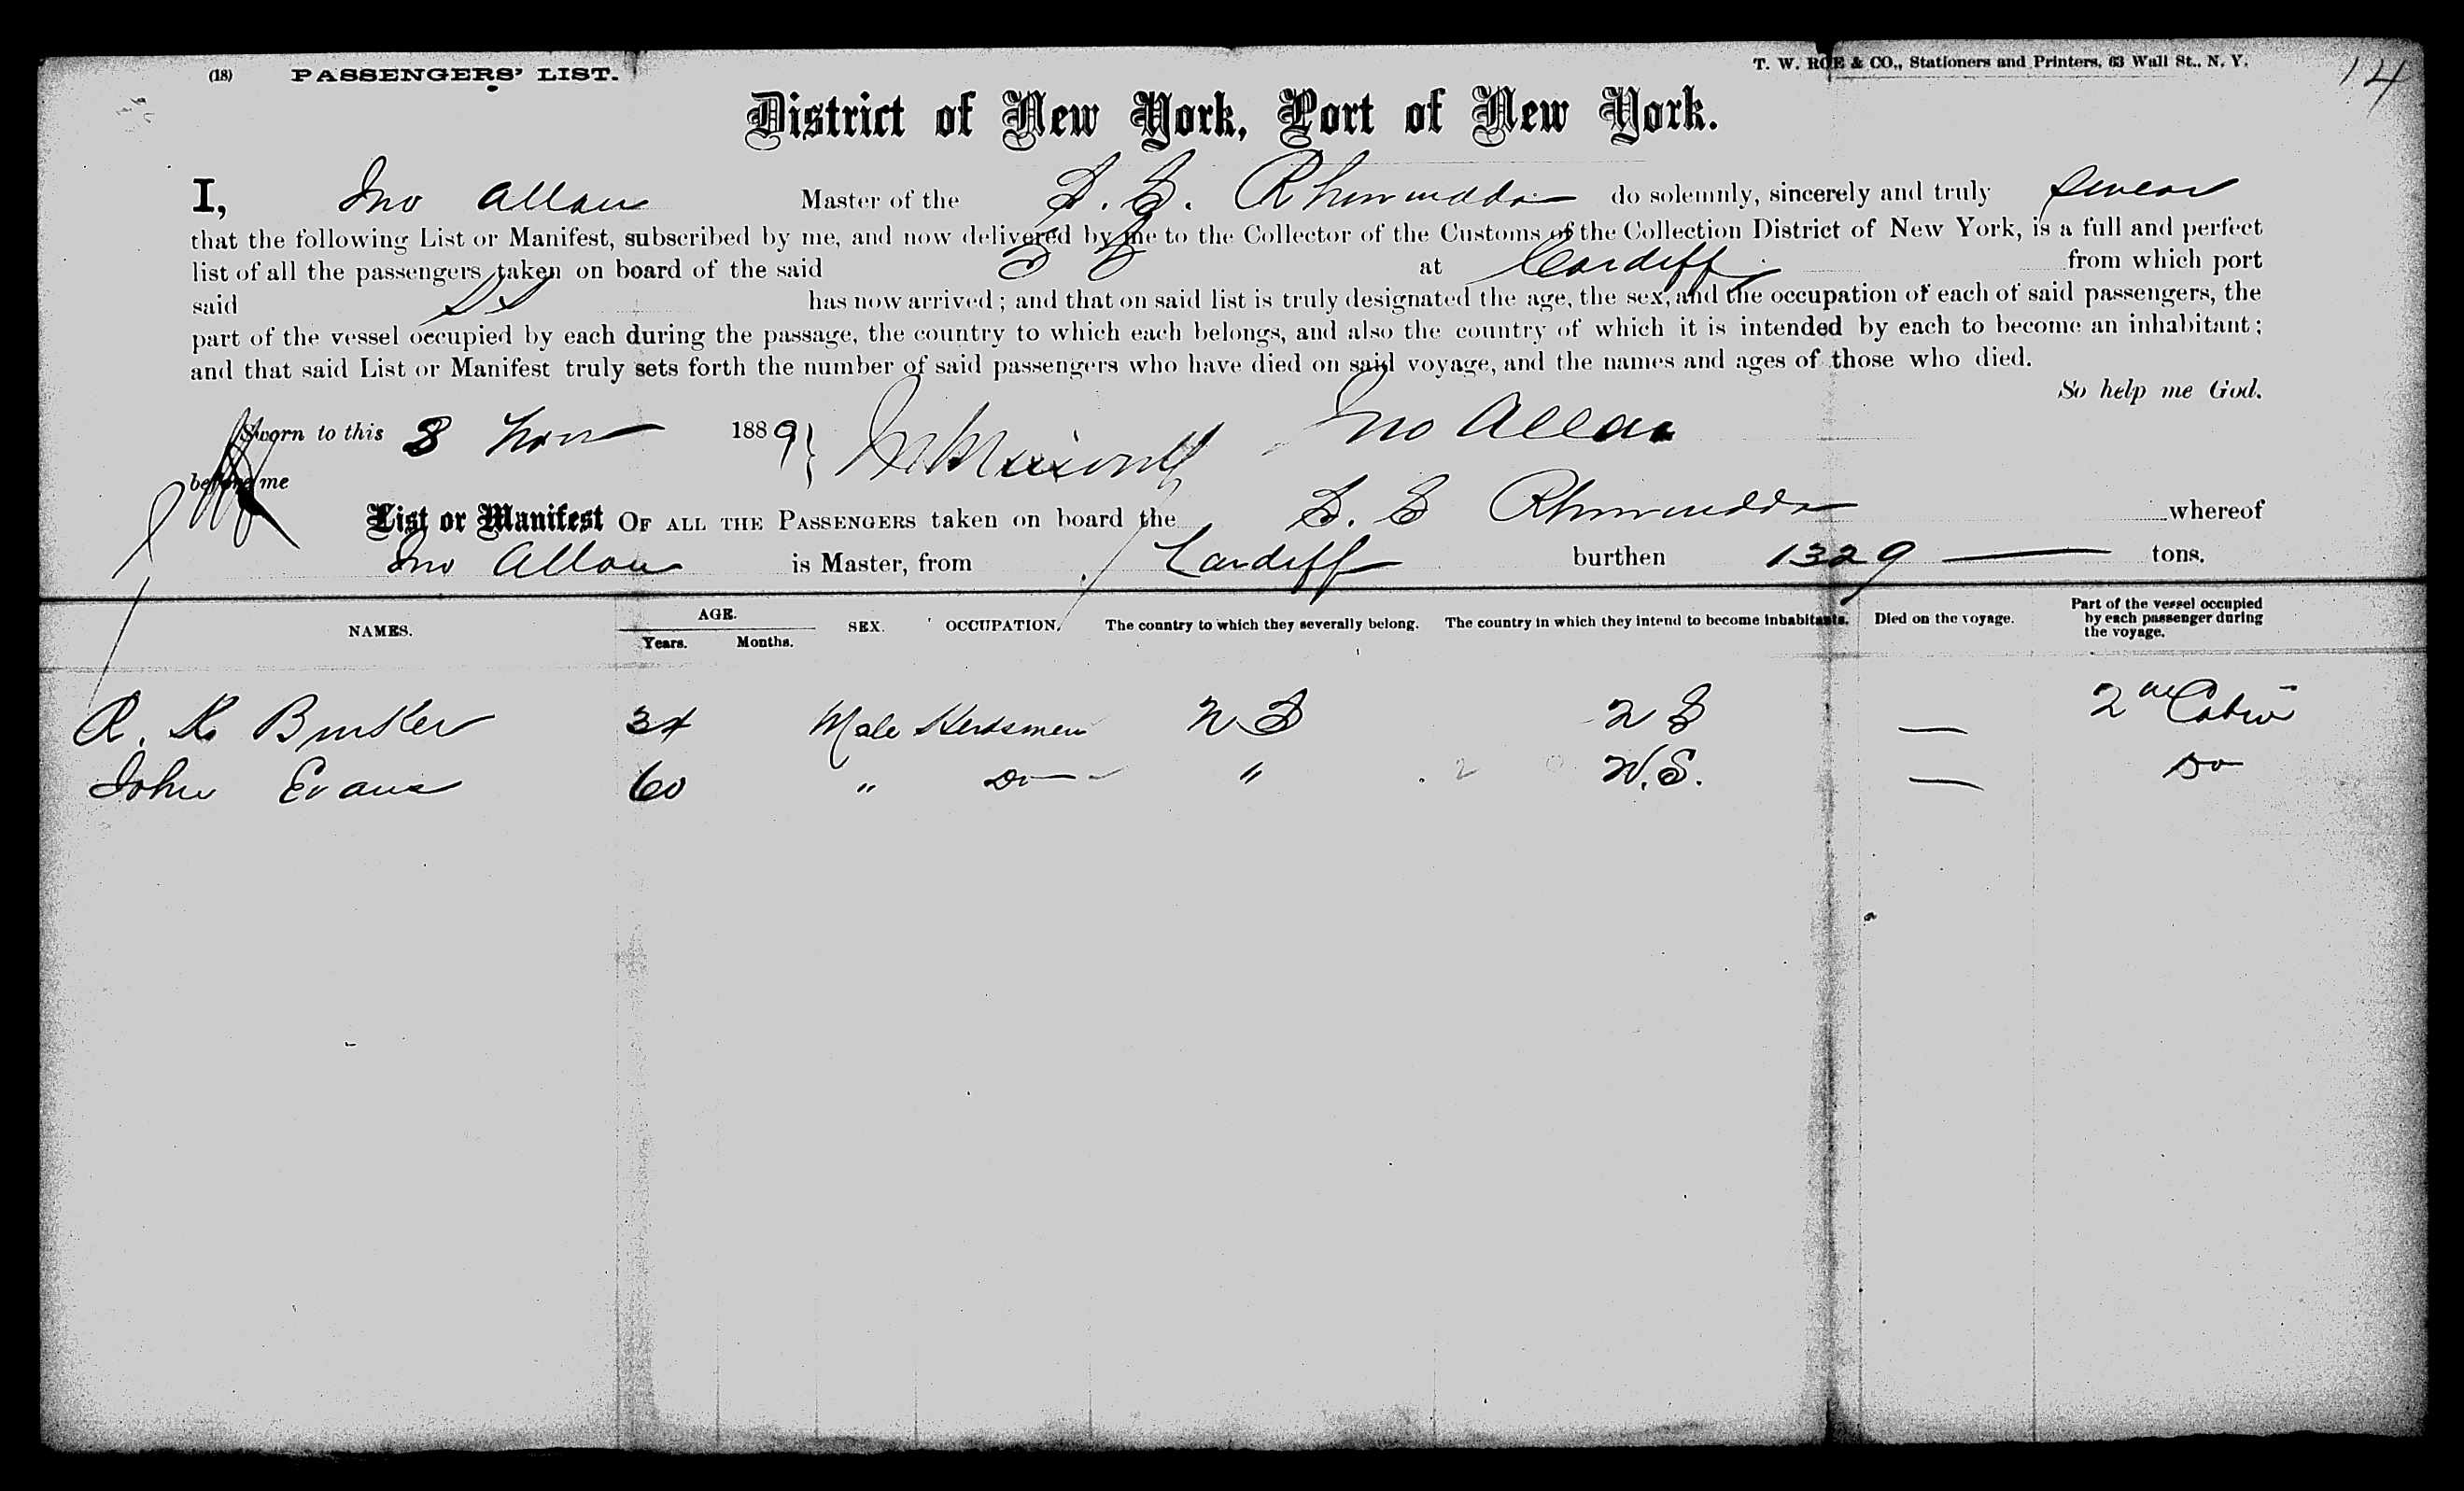 (18) PASSENGERS' LIST.
T. W. ROE & CO., Stationers and Printers, 63 Wall St., N. Y.
14
District of New York, Port of New York.
I, Jno Allan Master of the S. S. do solemnly, sincerely and truly swear
that the following List or Manifest, subscribed by me, and now delivered by me to the Collector of the Customs of the Collection District of New York, is a full and perfect
list of all the passengers taken on board of the said SS at Cardiff from which port
said SS has now arrived; and that on said list is truly designated the age, the sex, and the occupation of each of said passengers, the
part of the vessel occupied by each during the passage, the country to which each belongs, and also the country of which it is intended by each to become an inhabitant;
and that said List or Manifest truly sets forth the number of said passengers who have died on said voyage, and the names and ages of those who died.
So help me God.
Sworn to this 8 Nov 1889 } Jno Allan
before me
List or Manifest OF ALL THE PASSENGERS taken on board the S. S whereof
Jno Allan is Master, from Cardiff burthen 1329 tons.
NAMES. AGE. Years. Months. SEX. OCCUPATION. The country to which they severally belong. The country in which they intend to become inhabitants. Died on the voyage. Part of the vessel occupied by each passenger during the voyage.
R. K. Bunker 34 Male Herdsmen U S U S — 2nd Cabin
John Evans 60 " Do " U.S. — Do